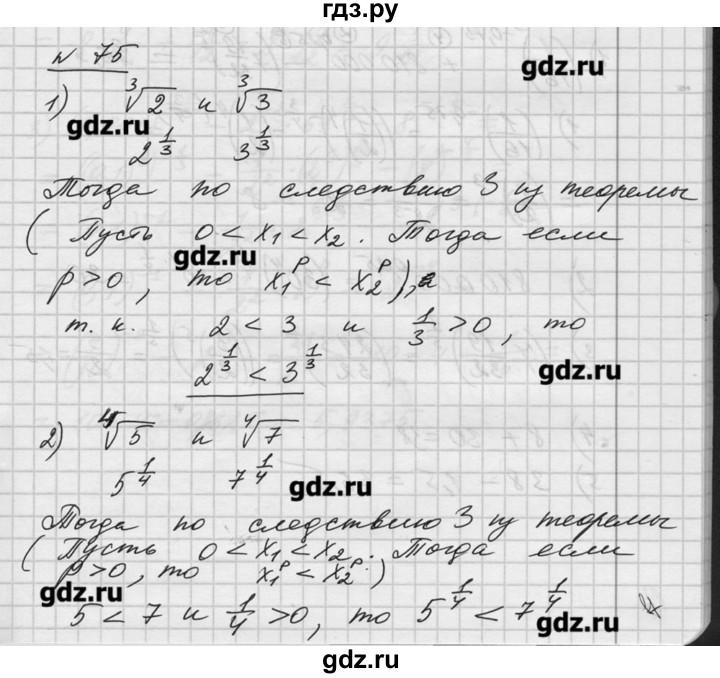 гдз.ру
№ 75
gdz.ru
1) ∛2 и ∛3
gdz.ru
2^(1/3) 3^(1/3)
Тогда по следствию 3 из теоремы
(Пусть 0 < x₁ < x₂. Тогда если
gdz.ru
p > 0, то x₁^p < x₂^p),
т. к. 2 < 3 и 1/3 > 0, то
2^(1/3) < 3^(1/3)
gdz.ru
2) ∜5 и ∜7
5^(1/4) 7^(1/4)
gdz.ru
Тогда по следствию 3 из теоремы
(Пусть 0 < x₁ < x₂. Тогда если
p > 0, то x₁^p < x₂^p.)
gdz.ru
5 < 7 и 1/4 > 0, то 5^(1/4) < 7^(1/4)
gdz.ru
gdz.ru